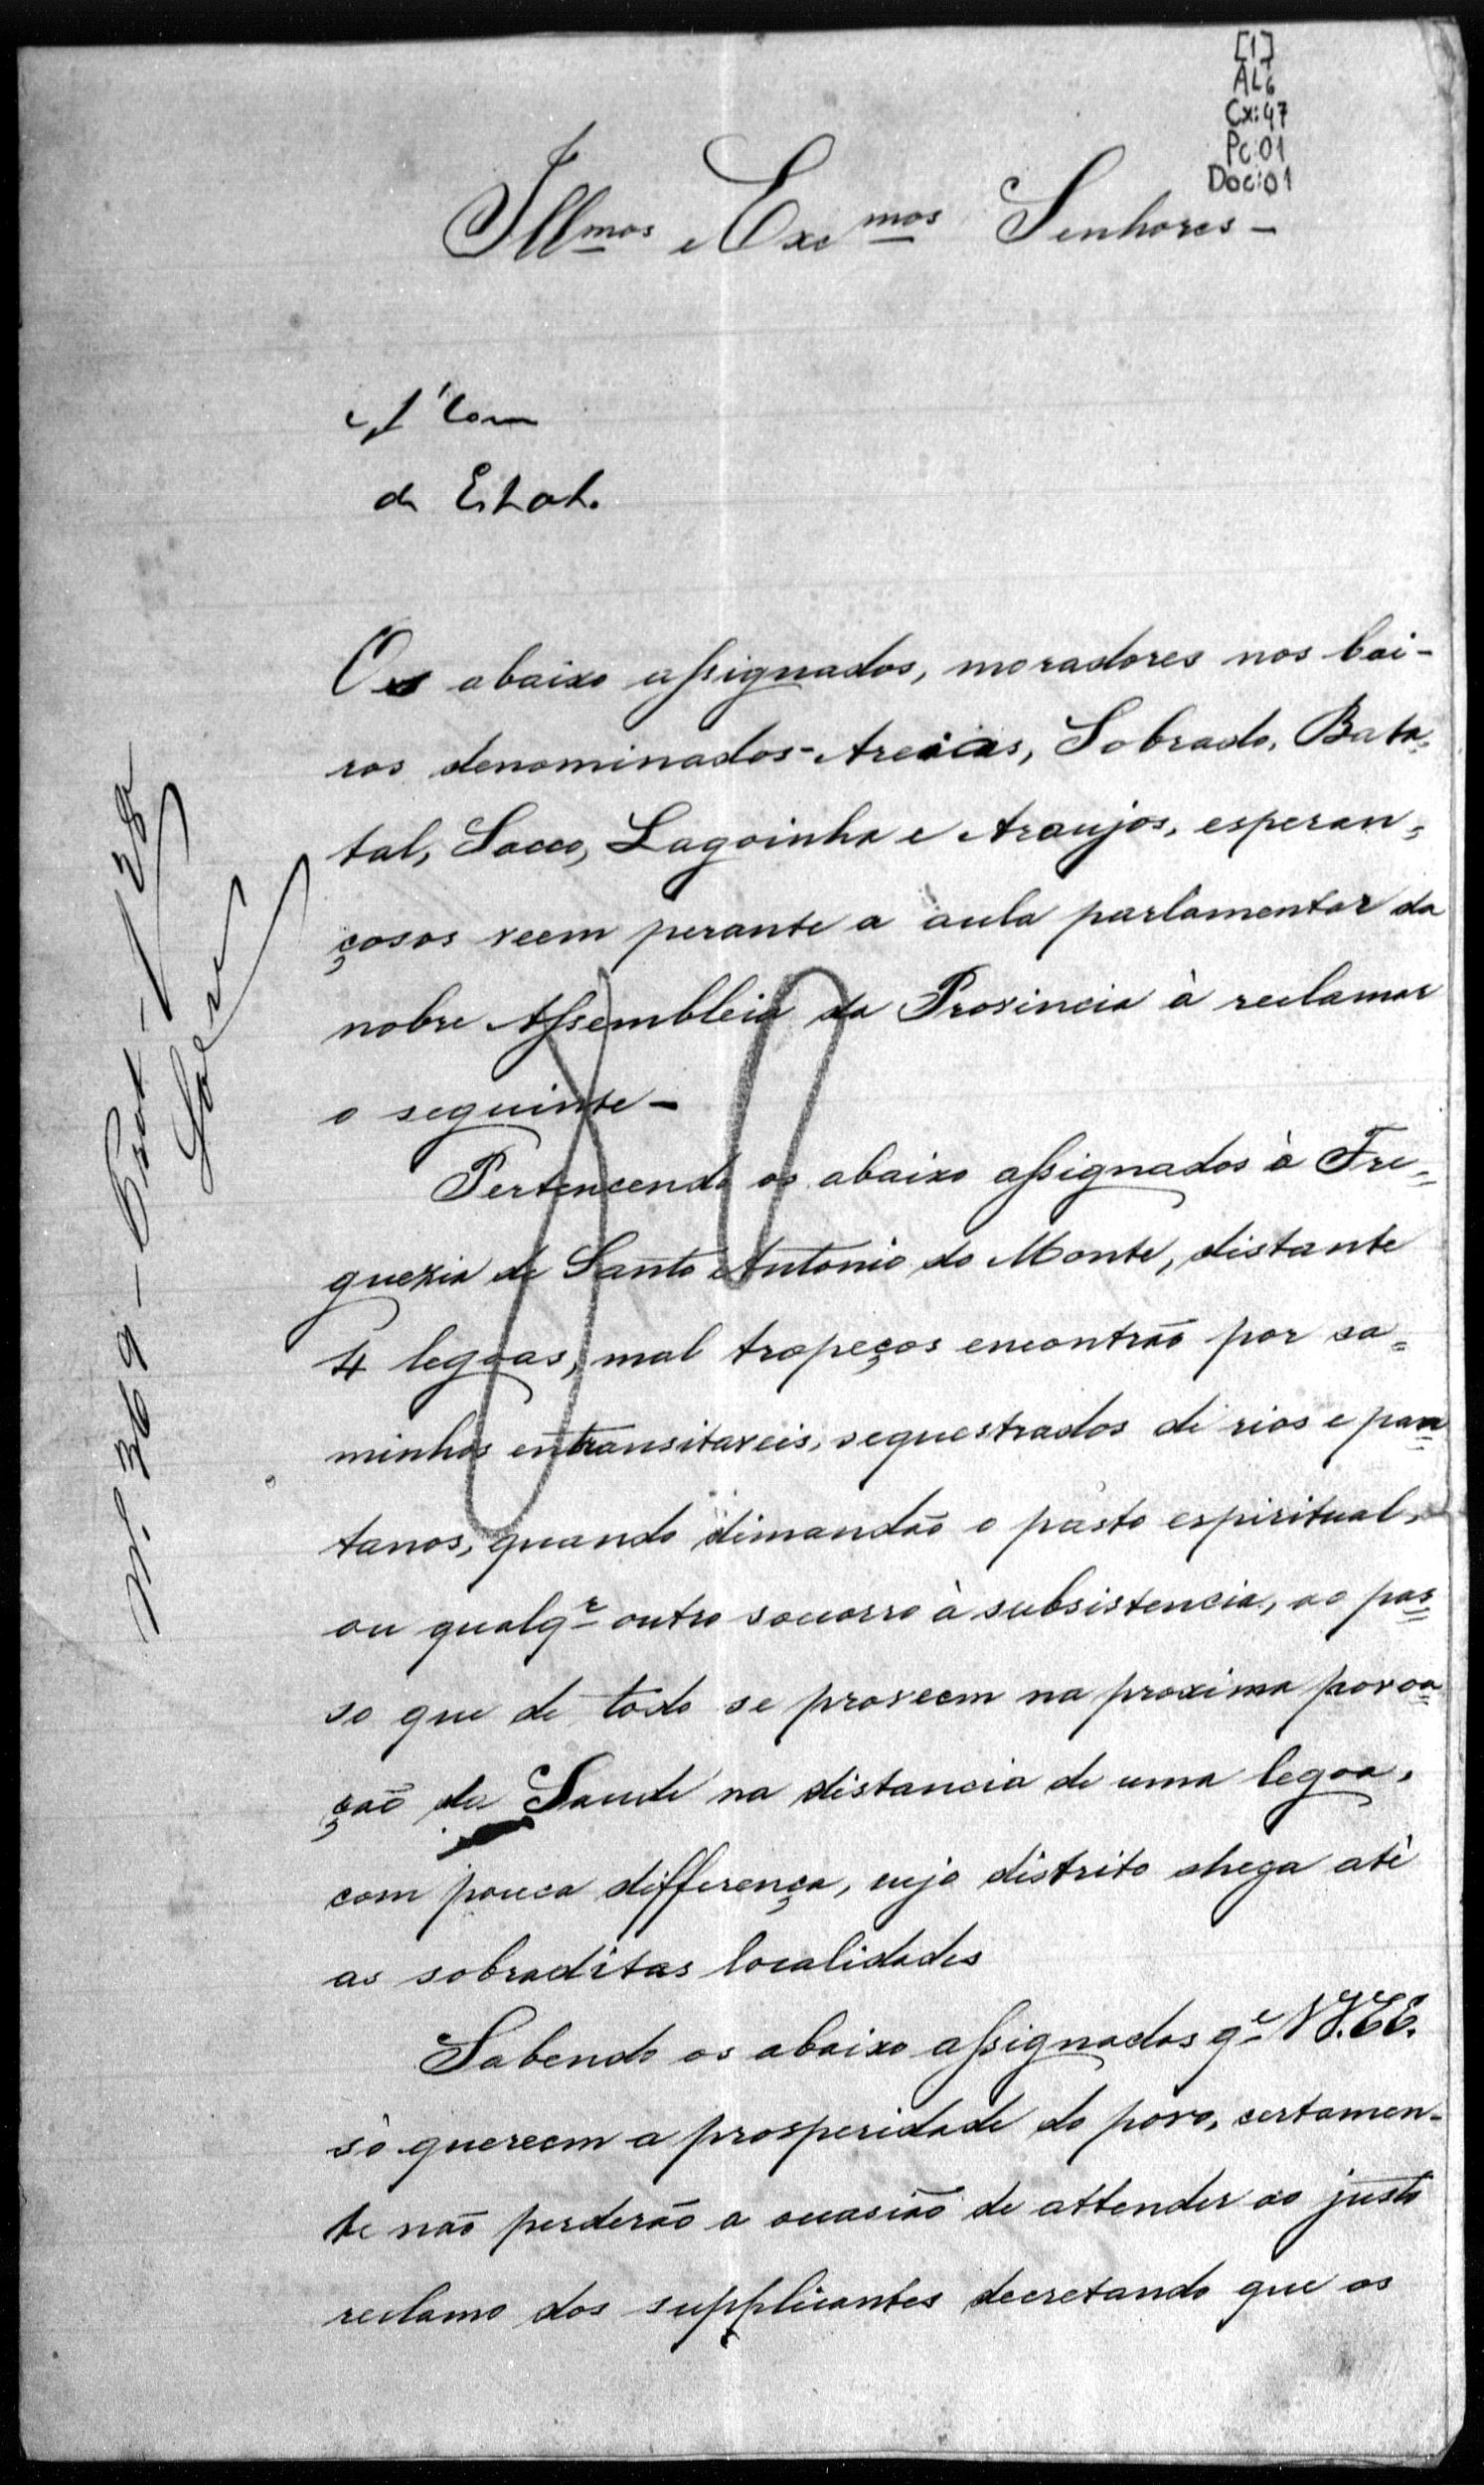 [1]
AL6
Cx: 47
Pc 01
Doc: 01
Illmos e Exemos Senhores -
Á Com
de Estat.
Os abaixo assignados, moradores nos bai-
ros denominados - Areias, Sobrado, Bata=
tal, Sacco, Lagoinha e Araujos, esperan=
çosos veem perante a aula parlamentar da
nobre Assembleia da Provincia à reclamar
o seguinte -
Pertencendo os abaixo assignados à Fre=
guezia de Santo Antonio do Monte, distante
4 legoas, mal tropeços encontrão por ca=
minhos entransitaveis, sequestrados de rios e pan=
tanos, quando dimandão o pasto espiritual,
ou qualqr outro socorro à subsistencia, ao pas=
so que de todo se proveem na proxima povoa=
ção da Saude na distancia de uma legoa,
com pouca differença, cujo distrito chega atè
as sobraditas localidades
Sabendo os abaixo assignados qe VV.EE.
sò quereem a prosperidade do povo, certamen-
te não perderão a occasião de attender ao justo
reclamo dos supplicantes decretando que os
Nº 369 -